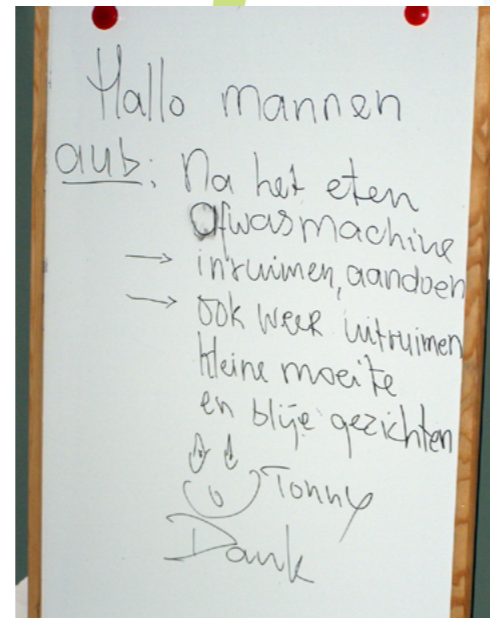 Hallo mannen
aub: Na het eten
afwasmachine
→ inruimen, aandoen
→ ook weer uitruimen
kleine moeite
en blije gezichten
Tonny
Dank